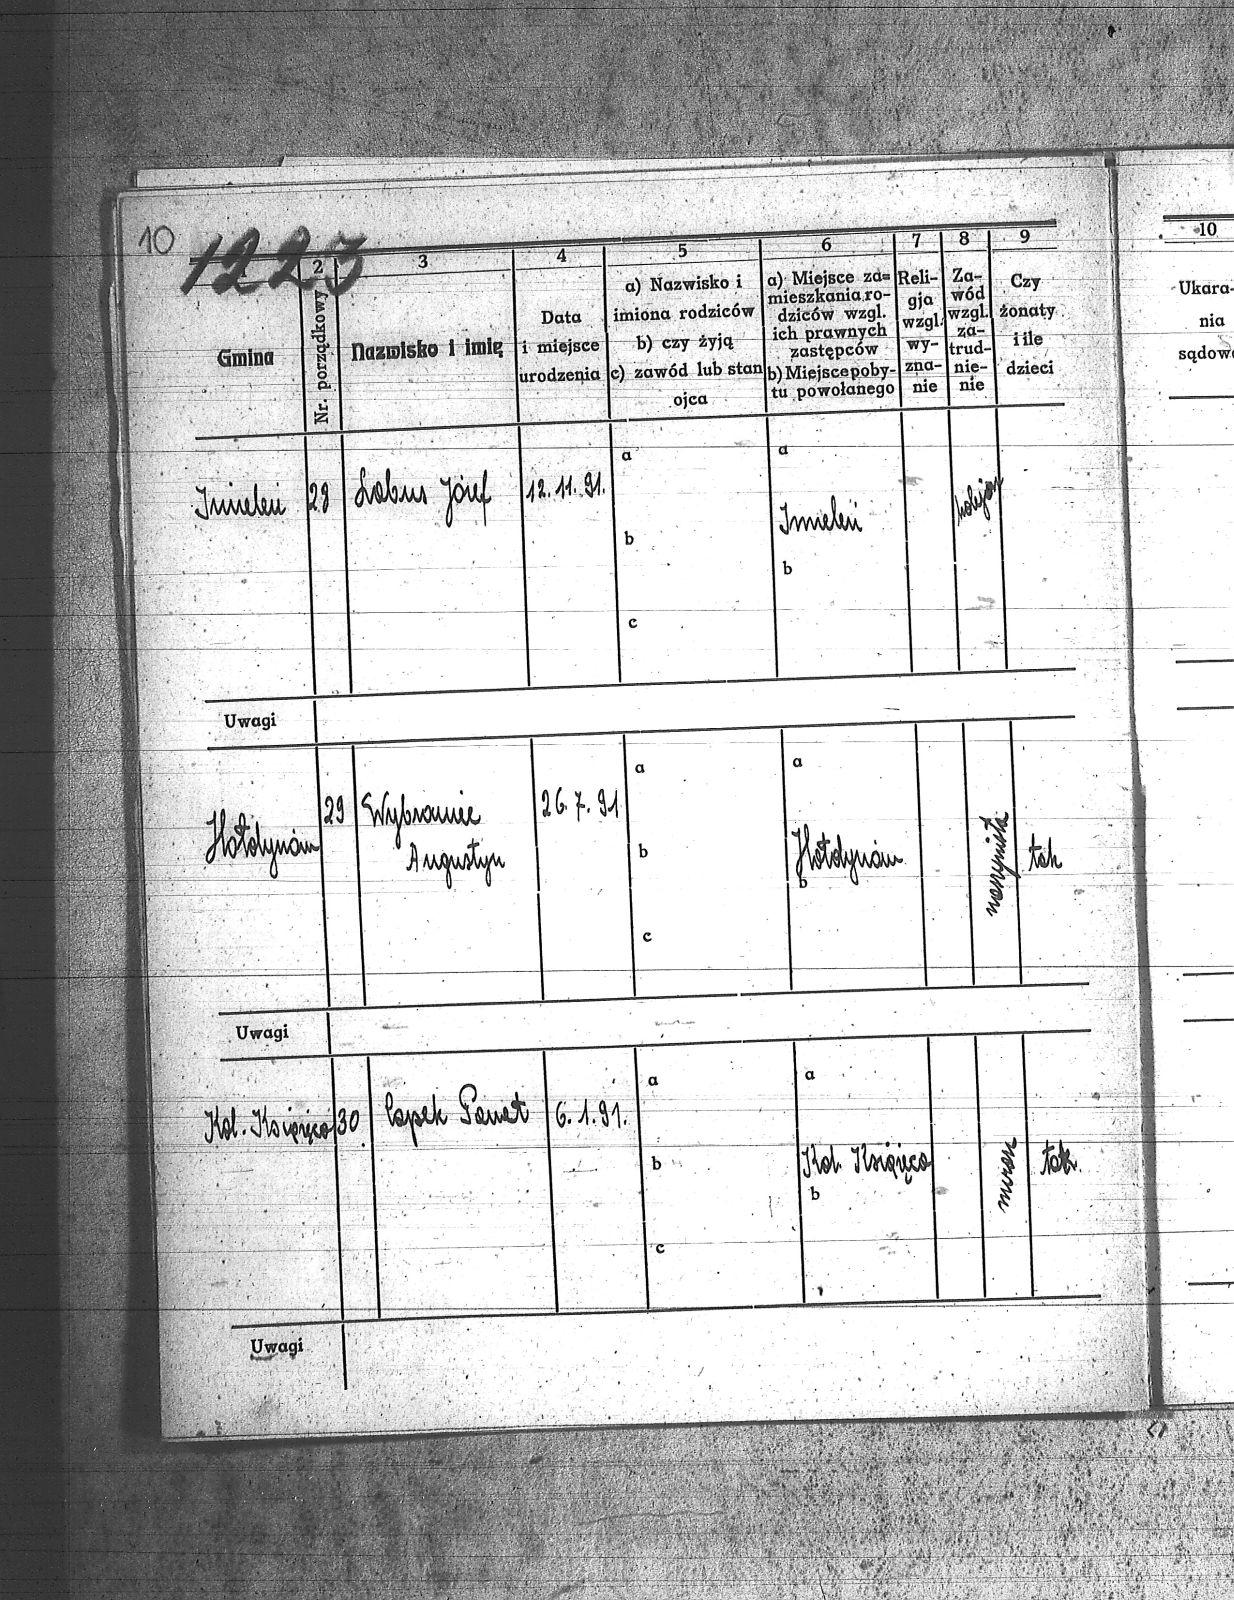 10
1223
2 3 4 5 6 7 8 9 10
Gmina
Nr. porządkowy
Nazwisko i imię
Data
i miejsce
urodzenia
a) Nazwisko i
imiona rodziców
b) czy żyją
c) zawód lub stan
ojca
a) Miejsce za=
mieszkania ro-
dziców wzgl.
ich prawnych
zastępców
b) Miejsce poby-
tu powołanego
Reli-
gja
wzgl.
wy-
zna-
nie
Za-
wód
wzgl.
za-
trud-
nie-
nie
Czy
żonaty
i ile
dzieci
Ukara-
nia
sądowe
Imieleń 28 Labus Józef 12.11.91.
a
b
c
a
Imieleń
b
Uwagi
Hołdynów 29 Wybraniec
Augustyn
26.7.91
a
b
c
a
Hołdynów
b
maszynista
tak
Uwagi
Kol. Książęca 30 Capek Paweł 6.1.91.
a
b
c
a
Kol. Książęca
b
tak
Uwagi